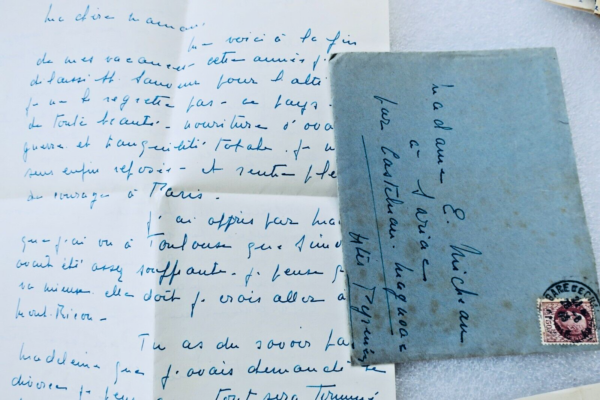 Ma chère maman.
Me voici à la fin
de mes vacances. cette année j'
délaissé St Sauveur pour l'alti
je ne le regrette pas. ce pays
de toute beauté. nourriture d'ava
guerre et tranquillité totale. je
sens enfin reposée. et rentre ple
de courage à Paris.
J'ai appris par Ma
que j'ai vu à Toulouse que Simo
avait été assez souffrante. je pense q
va mieux. elle doit je crois aller à
Mont-
Tu as du savoir par
Madeleine que j'avais demandé le
divorce je pense tout sera terminé
Madame E. Michau
à Sariac
par Castelnau. Magnoac
Htes Pyrénées
GARE DE